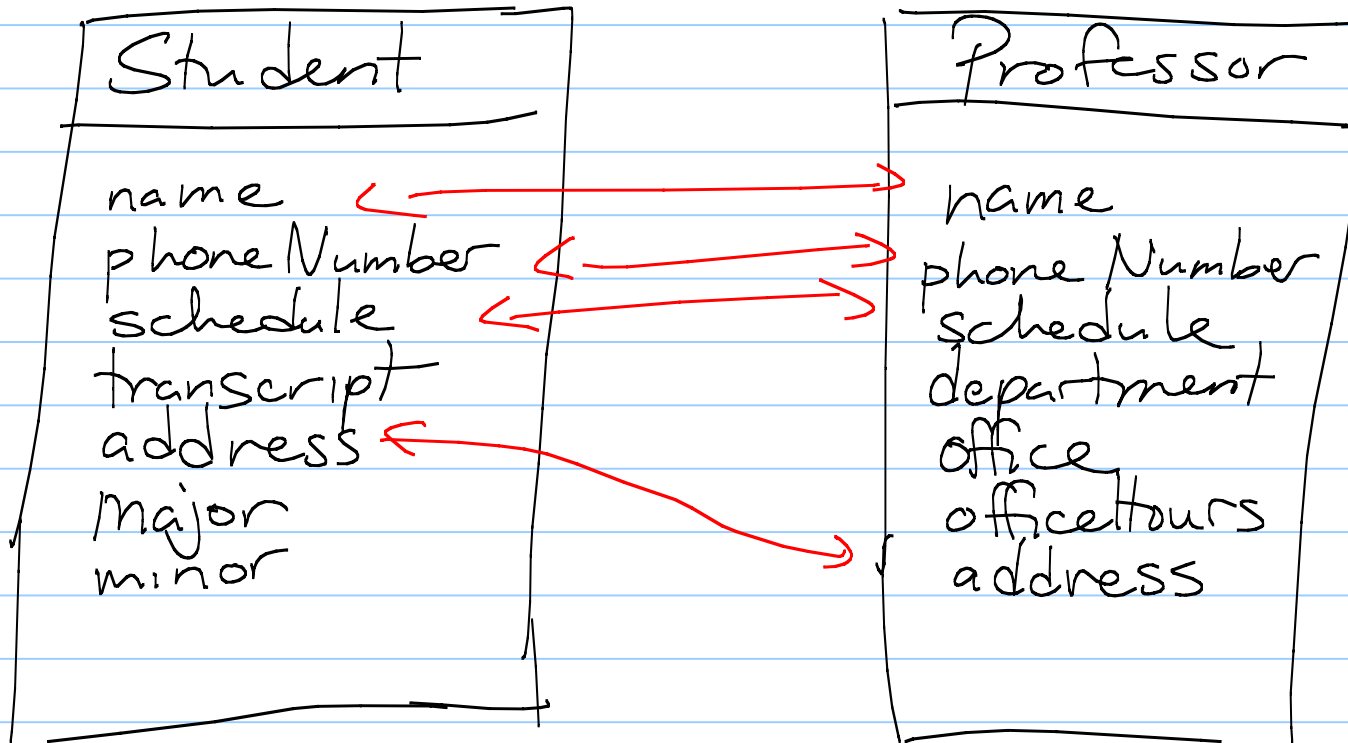 Student
name
phoneNumber
schedule
transcript
address
major
minor
Professor
name
phoneNumber
schedule
department
office
officeHours
address